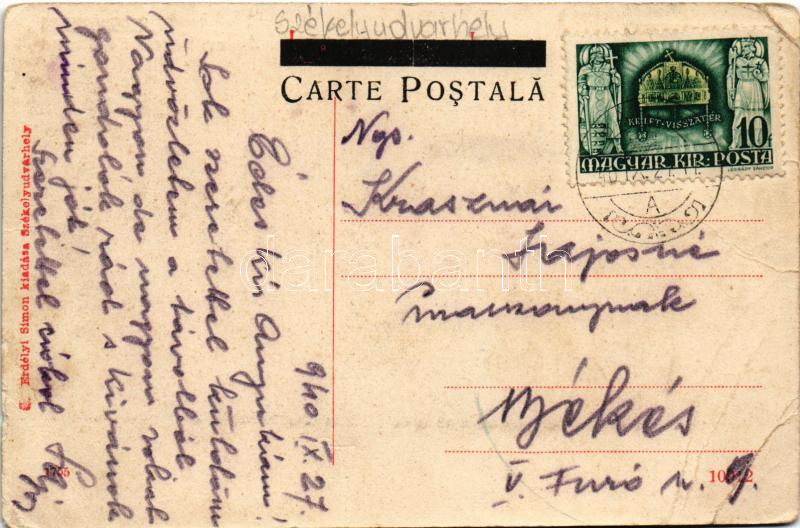 Székelyudvarhely
CARTE POŞTALĂ
KELET-VISSZATÉR
10f
MAGYAR·KIR·POSTA
A
Ngs.
Krasznár
Lajosné
Békés
V. Furó u. 9.
10
1755
940. IX. 27.
Édes kis Anyukám!
Sok szeretettel küldöm
üdvözletem a távolból
Nagyon de nagyon sokat
gondolok rád s kívánok
minden jót,
szeretettel csókol
Erdélyi Simon kiadása Székelyudvarhely
darabanth